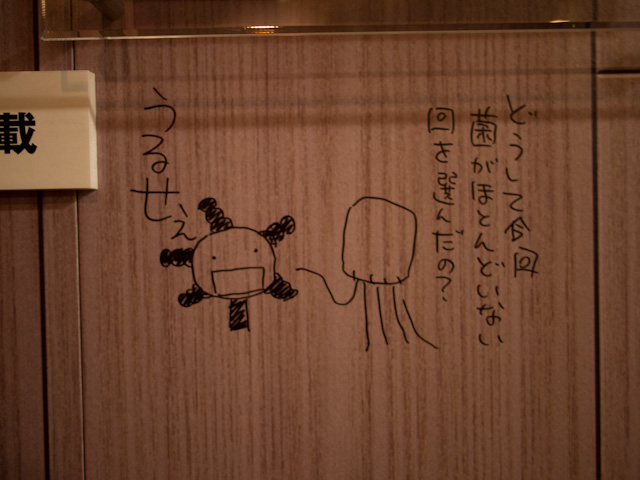 どうして今回
菌がほとんどいない
回を選んだの?
うるせぇ
載